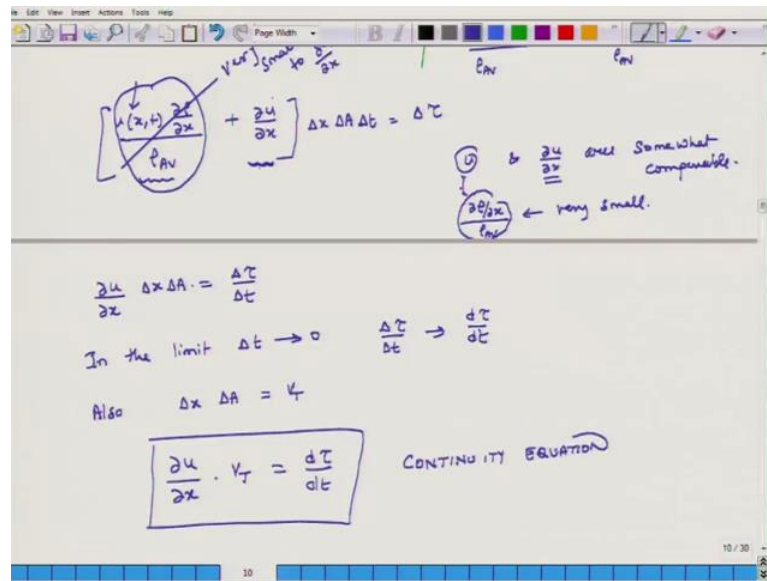 File Edit View Insert Actions Tools Help
Page Width
very small
to ∂/∂x
ρAV ρAV
[u(x,t) ∂ρ/∂x / ρAV + ∂u/∂x] Δx ΔA Δt = Δτ
u & ∂u/∂x are somewhat
comparable.
∂ρ/∂x / ρAV ← very small.
∂u/∂x Δx ΔA. = Δτ/Δt
In the limit Δt → 0 Δτ/Δt → dτ/dt
Also Δx ΔA = VT
∂u/∂x . VT = dτ/dt CONTINUITY EQUATION
10 / 30
10